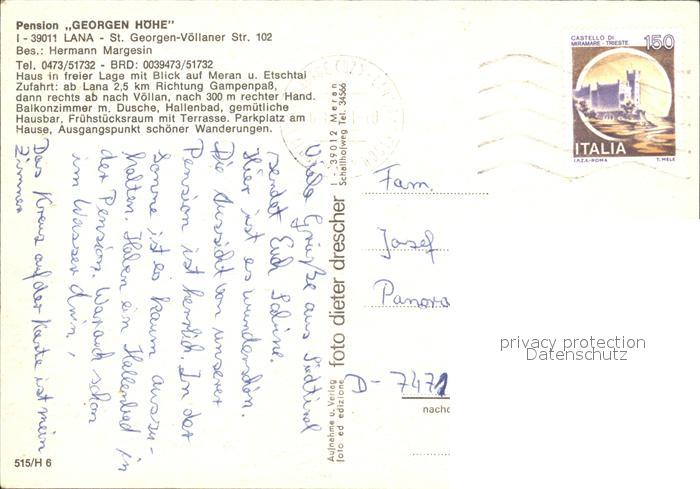 Pension „GEORGEN HÖHE"
I - 39011 LANA - St. Georgen-Völlaner Str. 102
Bes.: Hermann Margesin
Tel. 0473/51732 - BRD: 0039473/51732
Haus in freier Lage mit Blick auf Meran u. Etschtal
Zufahrt: ab Lana 2,5 km Richtung Gampenpaß,
dann rechts ab nach Völlan, nach 300 m rechter Hand.
Balkonzimmer m. Dusche, Hallenbad, gemütliche
Hausbar, Frühstücksraum mit Terrasse. Parkplatz am
Hause, Ausgangspunkt schöner Wanderungen.
Viele Grüße aus Südtirol
sendet Euch Sabine.
Hier ist es wunderschön.
Die Aussicht von unserer
Pension ist herrlich. In der
Sonne ist es kaum auszu-
halten. Haben ein Hallenbad in
der Pension. War auch schon
im Wasser drin,
Das Kreuz auf der Karte ist mein
Zimmer
515/H 6
Aufnahme u. Verlag
foto ed edizione
foto dieter drescher
I - 39012 Meran
Schallhofweg Tel. 34566
CASTELLO DI
MIRAMARE - TRIESTE
150
ITALIA
I.P.Z.S.-ROMA
T. MELE
Fam.
Josef
Panora
D- 7471
nacho
privacy protection
Datenschutz